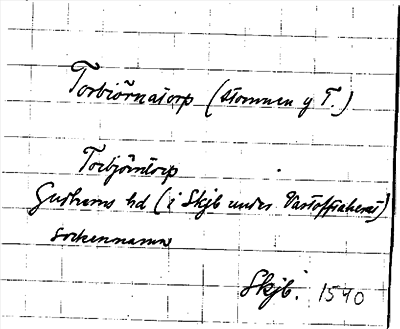 Torbiörnatorp (stommen y T.)
Torbjörntorp
Gudhems hd (i Skjb under Vartofta herad)
sockennamn
Skjb. 1540